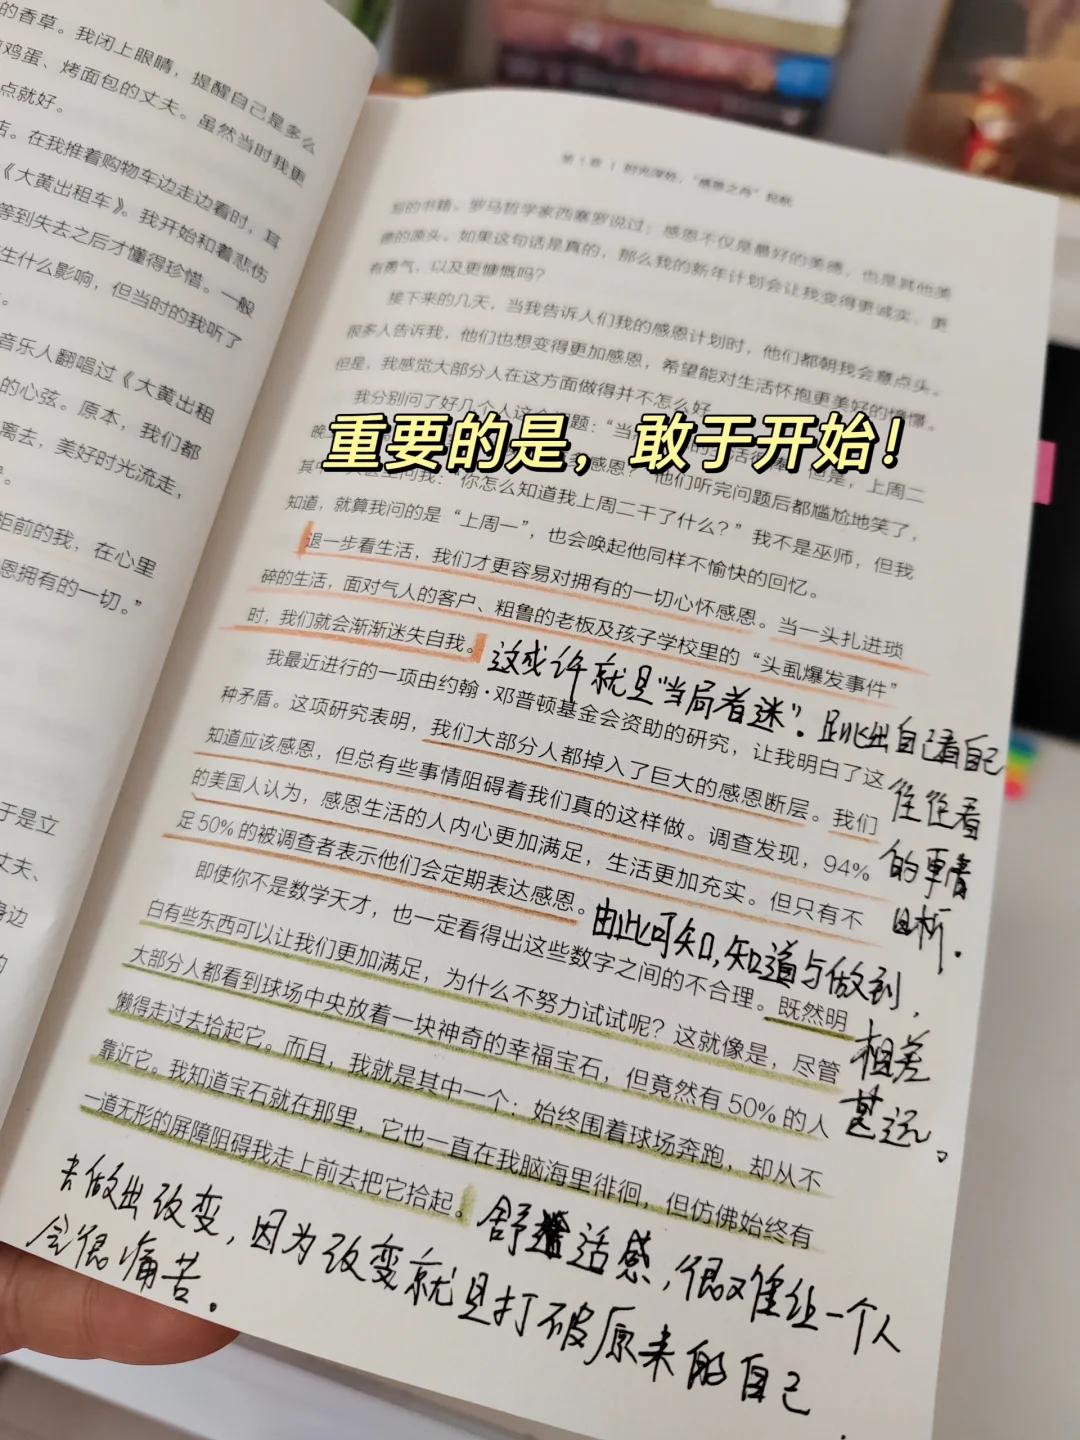 的香草。我闭上眼睛，提醒自己是多么
鸡蛋、烤面包的丈夫。虽然当时我更
点就好。
店。在我推着购物车边走边看时，耳
《大黄出租车》。我开始和着悲伤
等到失去之后才懂得珍惜。一般
生什么影响，但当时的我听了
音乐人翻唱过《大黄出租
的心弦。原本，我们都
离去，美好时光流走，
柜前的我，在心里
恩拥有的一切。”
于是立
丈夫、
身边
的
第1章 | 时光深处，“感恩之舟”轻帆
写的书籍。罗马哲学家西塞罗说过：感恩不仅是最好的美德，也是其他美
德的源头。如果这句话是真的，那么我的新年计划会让我变得更诚实、更
有勇气，以及更慷慨吗？
接下来的几天，当我告诉人们我的感恩计划时，他们都朝我会意点头。
很多人告诉我，他们也想变得更加感恩，希望能对生活怀抱更美好的憧憬。
但是，我感觉大部分人在这方面做得并不怎么好。
我分别问了好几个人这个问题：“当
但是，上周二
重要的是，敢于开始！
晚
感恩？”他们听完问题后都尴尬地笑了，
其中
问我：“你怎么知道我上周二干了什么？”我不是巫师，但我
知道，就算我问的是“上周一”，也会唤起他同样不愉快的回忆。
退一步看生活，我们才更容易对拥有的一切心怀感恩。当一头扎进琐
碎的生活，面对气人的客户、粗鲁的老板及孩子学校里的“头虱爆发事件”
时，我们就会渐渐迷失自我。
这或许就是“当局者迷”。且跳出自己看自己
往往看
的更清
目析。
我最近进行的一项由约翰·邓普顿基金会资助的研究，让我明白了这
种矛盾。这项研究表明，我们大部分人都掉入了巨大的感恩断层。我们
知道应该感恩，但总有些事情阻碍着我们真的这样做。调查发现，94%
的美国人认为，感恩生活的人内心更加满足，生活更加充实。但只有不
足50%的被调查者表示他们会定期表达感恩。
由此可知，知道与做到，
相差
甚远。
即使你不是数学天才，也一定看得出这些数字之间的不合理。既然明
白有些东西可以让我们更加满足，为什么不努力试试呢？这就像是，尽管
大部分人都看到球场中央放着一块神奇的幸福宝石，但竟然有50%的人
懒得走过去拾起它。而且，我就是其中一个：始终围着球场奔跑，却从不
靠近它。我知道宝石就在那里，它也一直在我脑海里徘徊，但仿佛始终有
一道无形的屏障阻碍我走上前去把它拾起。
舒适感，很难让一个人
去做出改变，因为改变就是打破原来的自己
会很痛苦。